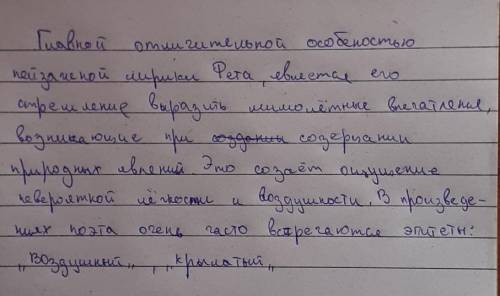 Главной отличительной особеностью
пейзажной лирики Фета, является его
стремление выразить мимолётные впечатление,
возникающие при создании содерцании
природных явлений. Это созаёт ощущение
невероятной лёгкости и воздушности. В произведе-
ниях поэта очень часто встрегаются эпитеты:
„Воздушный„ , „крылатый„